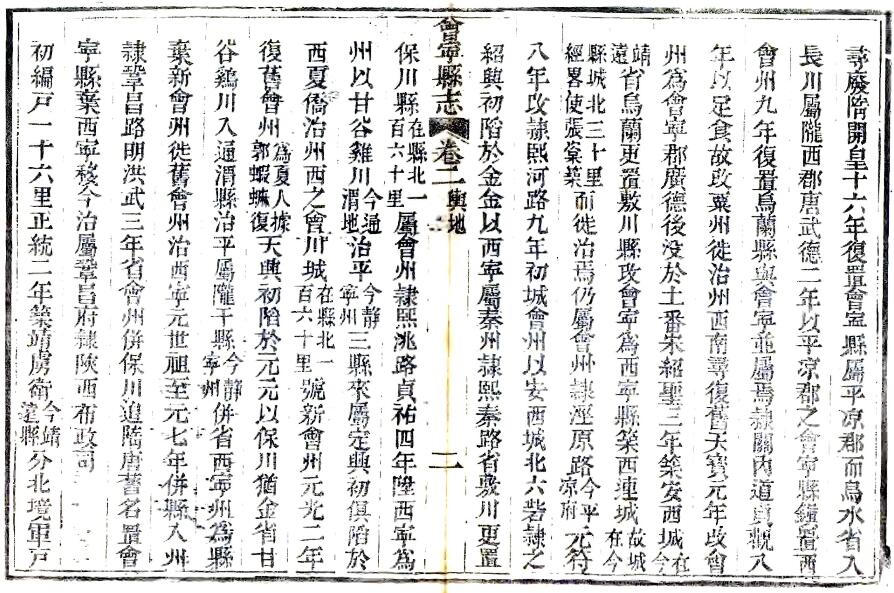 尋廢隋開皇十六年復置會寧縣屬平凉郡而烏水省入
長川屬隴西郡唐武德二年以平凉郡之會寧縣鎮置西
會州九年復置烏蘭縣與會寧並屬焉隷關內道貞觀八
年以定食故改粟州徙治州西南尋復舊天寶元年改會
州爲會寧郡廣德後没於土番宋紹聖三年築安西城在今
縣城北三十里靖遠省烏蘭更置敷川縣改會寧爲西寧縣築西連城故城在今
經畧使張棠築而徙治焉仍屬會州隷涇原路今平凉府元符
八年改隷熙河路九年初城會州以安西城北六砦隷之
紹興初陷於金金以西寧屬秦州隷熙秦路省敷川更置
會寧縣志 卷二 輿地 二
保川縣在縣北一百六十里屬會州隷熙洮路貞祐四年陞西寧爲
州以甘谷雞川今通渭地治平今靜寧州三縣來屬定興初俱陷於
西夏僑治州西之會川城在縣北一百六十里號新會州元光二年
復舊會州爲夏人據郭蝦蟆復天興初陷於元元以保川猶金省甘
谷鷄川入通渭縣治平屬隴干縣今靜寧州併省西寧州爲縣
棄新會州徙舊會州治西寧元世祖至元七年併縣入州
隷鞏昌路明洪武三年省會州併保川迫隋唐舊名置會
寧縣棄西寧移今治屬鞏昌府隷陝西布政司
初編戸一十六里正統二年築靖虜衛今靖遠縣分北境軍戸